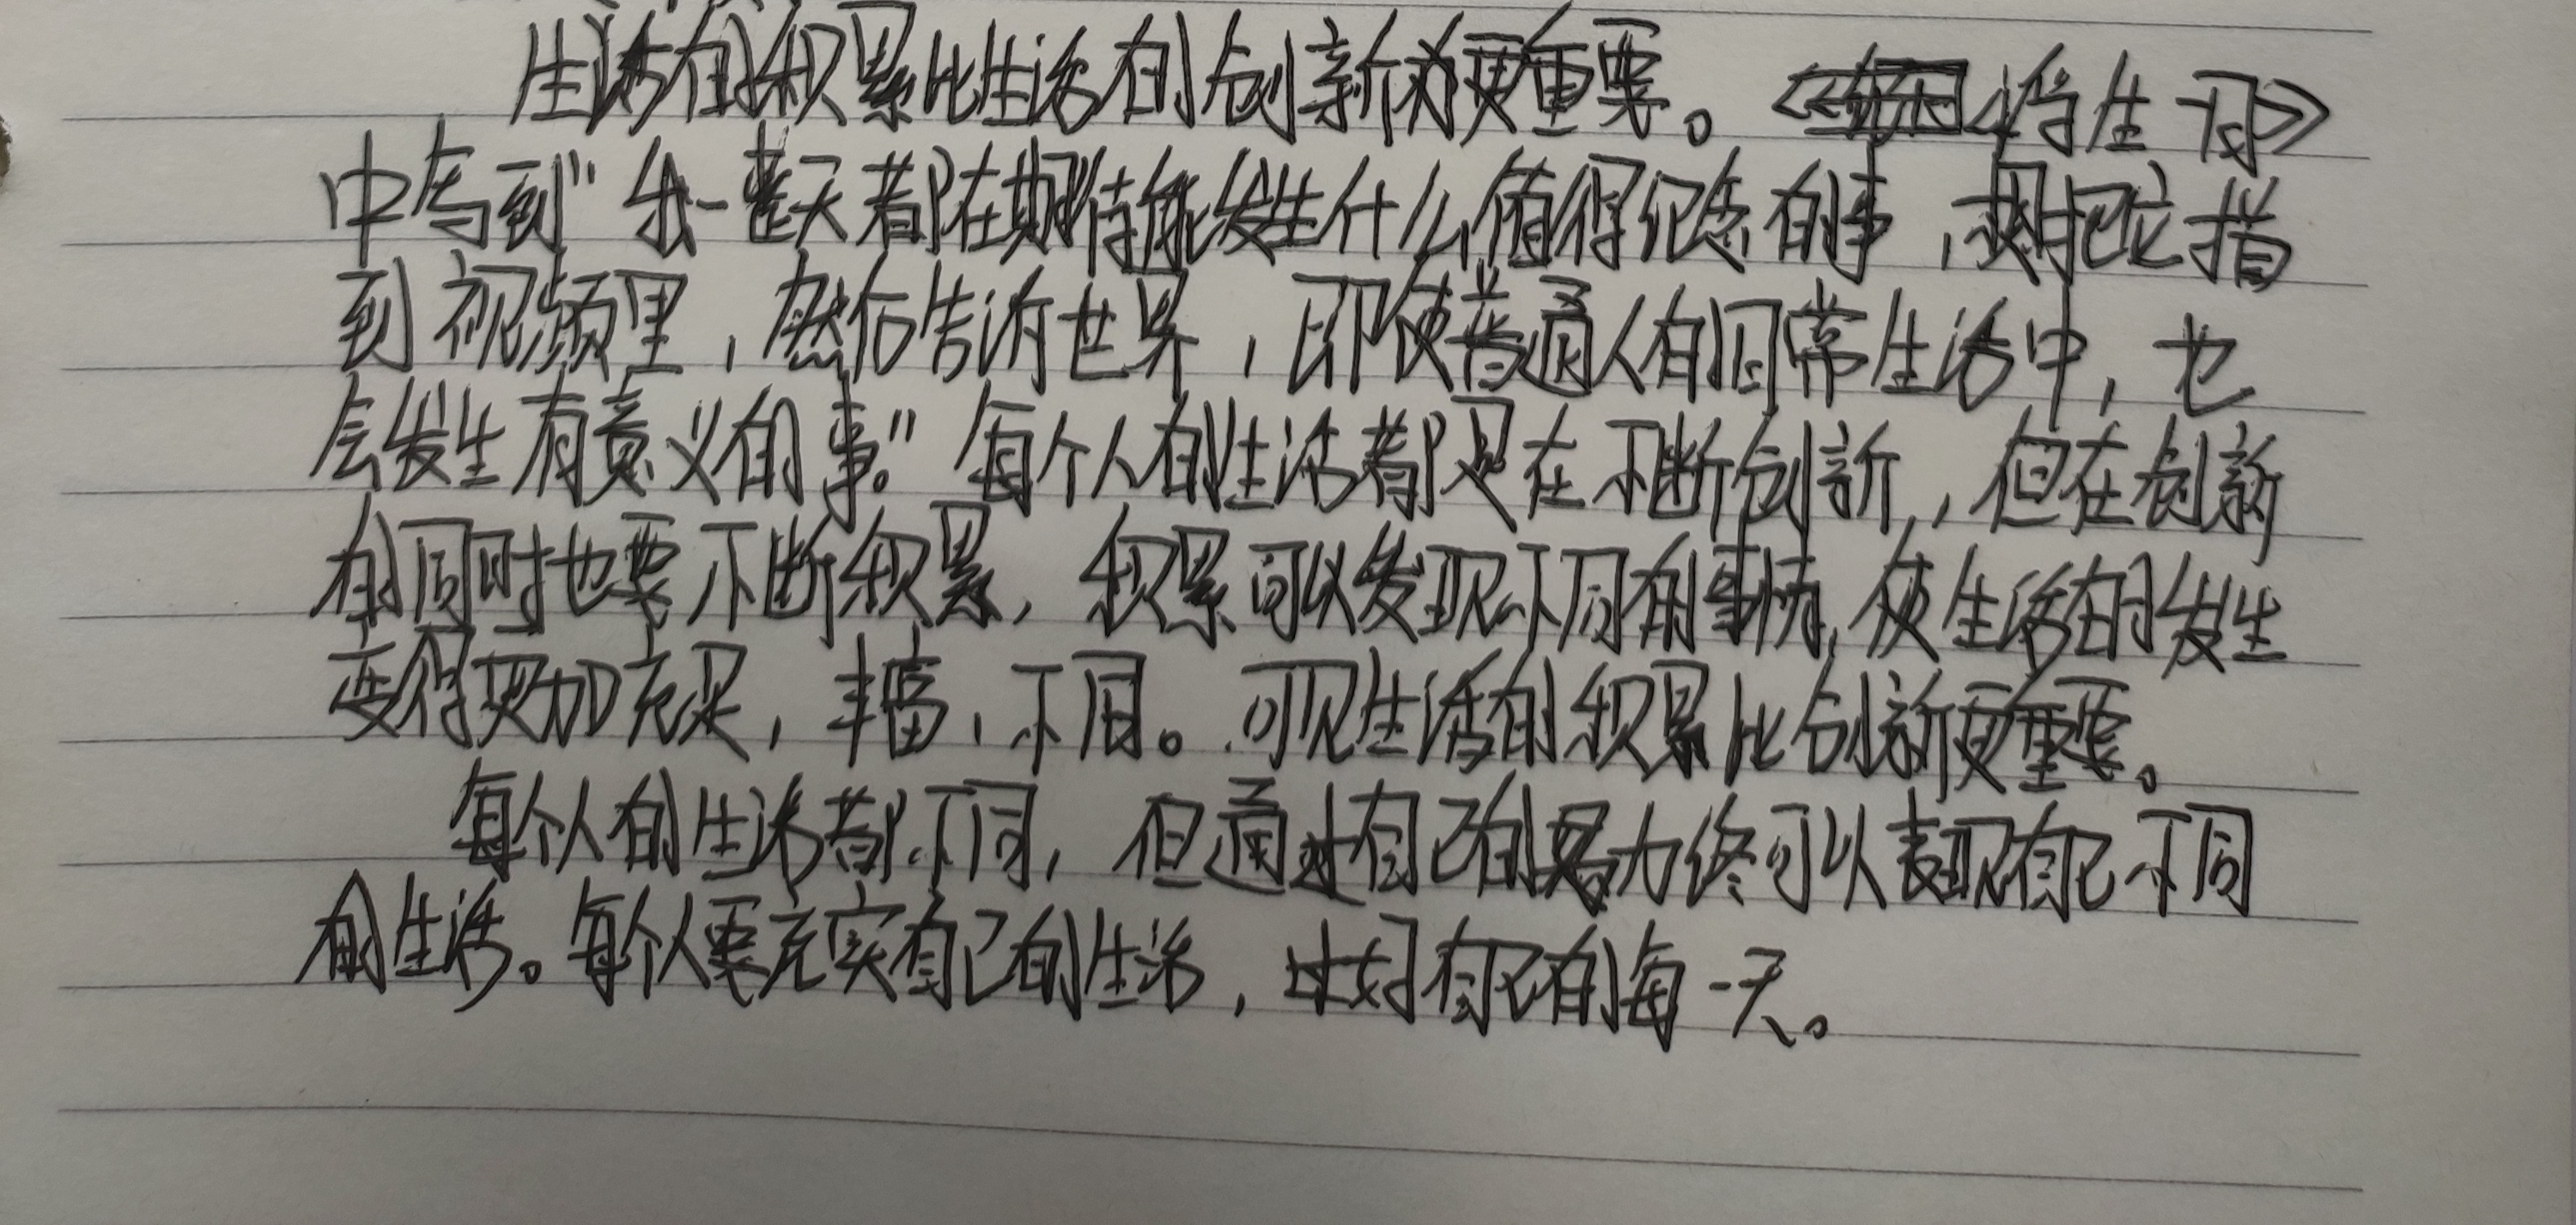 生活的积累比生活的创新更重要。《浮生一日》
中写到"我一整天都在期待能发生什么值得纪念的事,把它拍
到视频里,然后告诉世界,即使普通人的日常生活中,也
会发生有意义的事。"每个人的生活都是在不断创新,但在创新
的同时也要不断积累,积累可以发现不同的事情,使生活的发生
变得更加充足,丰富,不同。可见生活的积累比创新更重要。
每个人的生活都不同,但通过自己的努力终可以表现自己不同
的生活。每个人要充实自己的生活,过好自己的每一天。